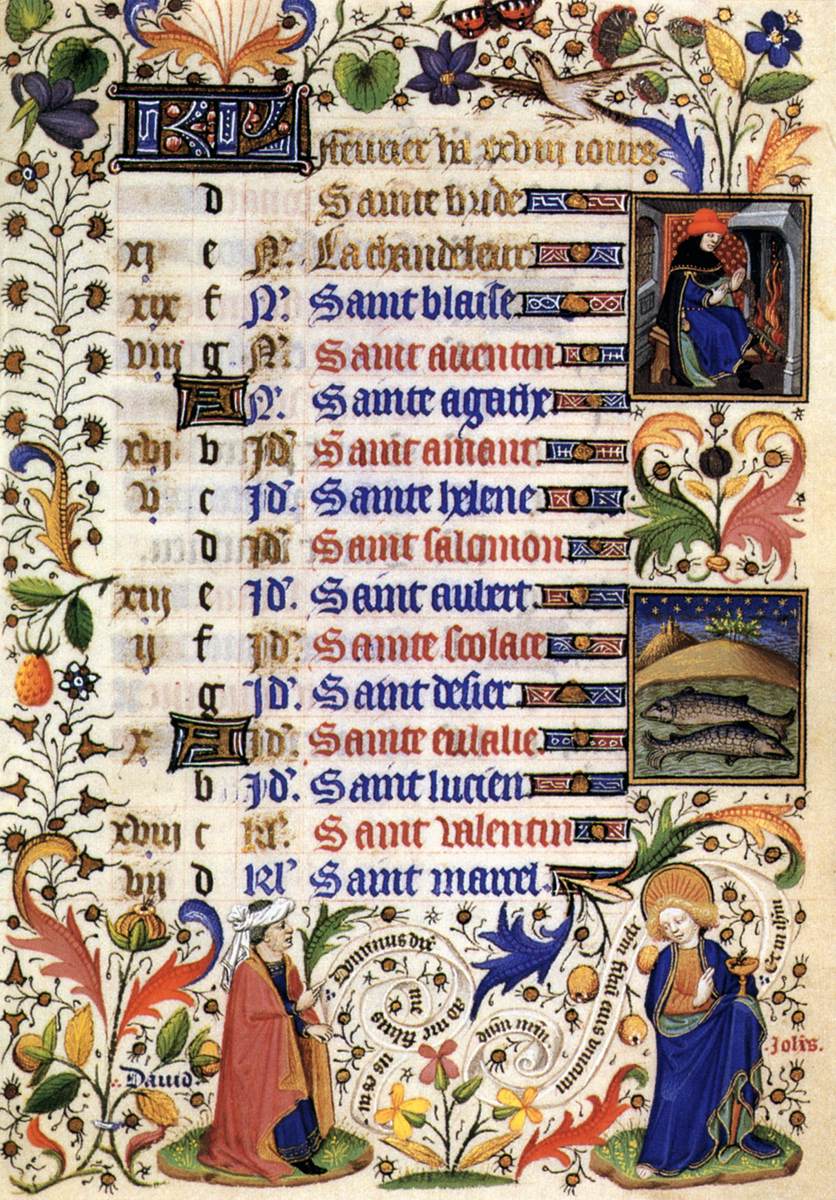 KL fevrier ha xxviii iours.
d Sainte bride
xi e N. La chandeleur
xix f N. Saint blaise
viii g N. Saint aventin
A N. Sainte agathe
xvi b Id. Saint amant.
v c Id. Sainte helene
d Id. Saint salomon
xiii e Id. Saint aubert.
ii f Id. Sainte scolace
g Id. Saint desier
x A Id. Sainte eulalie
b Id. Saint lucien
xviii c kl. Saint valentin
vii d kl Saint marcel.
Dominus dix
ad me filius
me
us es tu
David.
xpm filium eius unicum
dnm nrm.
Et in ihm
Jo��is.